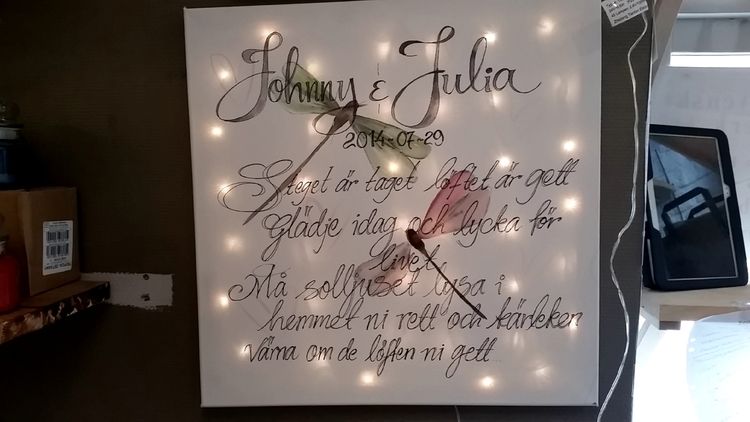 Johnny & Julia
2014-07-29
Steget är taget löftet är gett
Glädje idag och lycka för
livet,
Må solljuset lysa i
hemmet ni rett och kärleken
Värna om de löften ni gett...